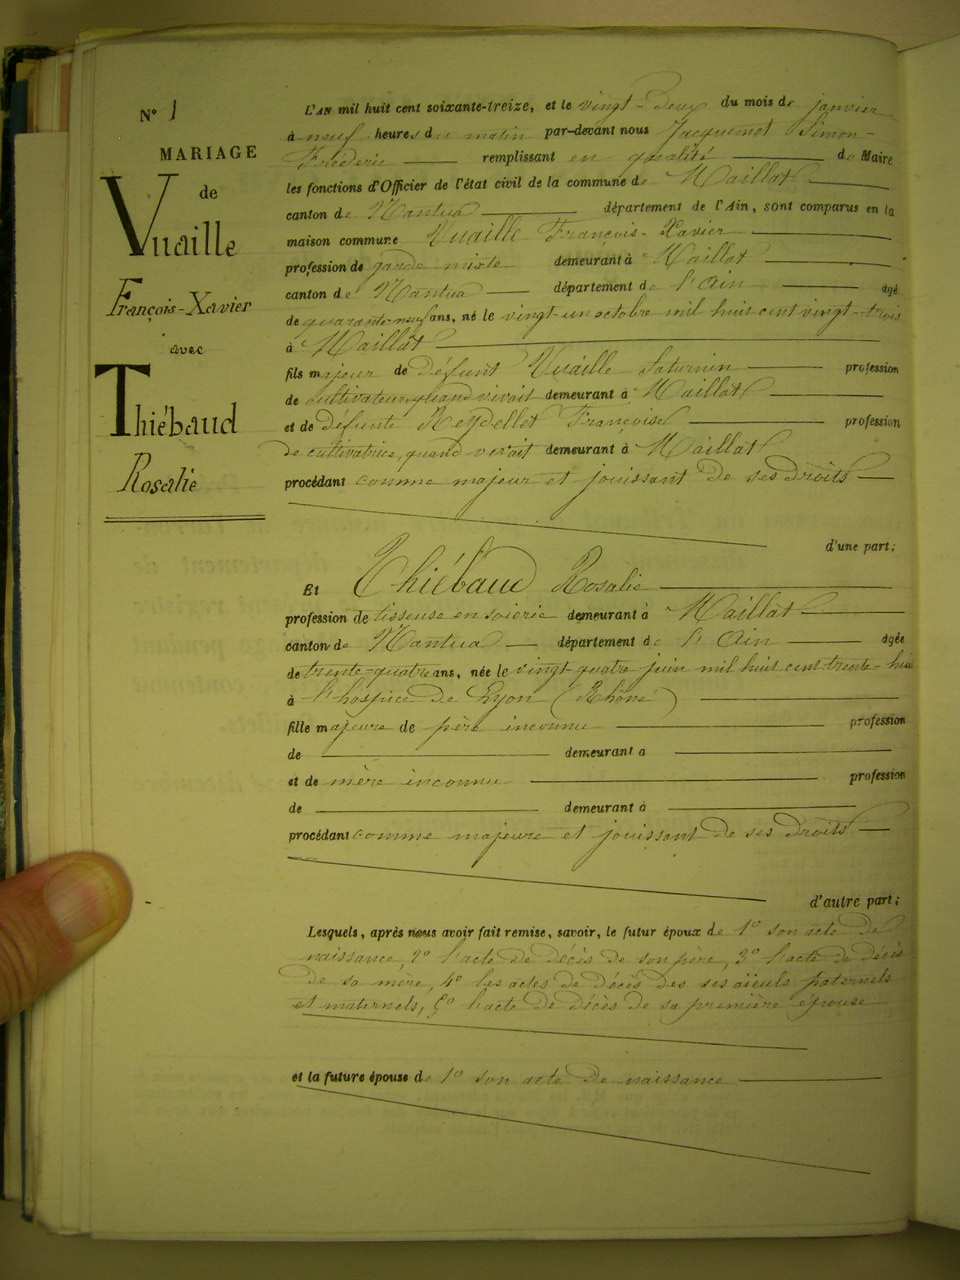 N° 1
MARIAGE
de
Vuaille
François-Xavier
avec
Thiébaud
Rosalie
L'AN mil huit cent soixante-treize, et le vingt-deux du mois de janvier
à neuf heures du matin par-devant nous Jacquemet Simon-
Fréderic remplissant en qualité de Maire
les fonctions d'Officier de l'état civil de la commune de Maillat
canton de Nantua département de l'Ain, sont comparus en la
maison commune Vuaille François-Xavier
profession de garde mixte demeurant à Maillat
canton de Nantua département de l'Ain agé
de quarante neuf ans, né le vingt-un octobre mil huit cent vingt-trois
à Maillat
fils majeur de défunt Vuaille Saturnin profession
de cultivateur, quand vivait demeurant à Maillat
et de défunte Reydellet Françoise profession
de cultivatrice, quand vivait demeurant à Maillat
procédant comme majeur et jouissant de ses droits
d'une part;
Et Thiébaud Rosalie
profession de tisseuse en soierie demeurant à Maillat
canton de Nantua département de l'Ain agée
de trente-quatre ans, née le vingt quatre juin mil huit cent trente-huit
à l'hospice de Lyon (Rhône)
fille majeure de père inconnu profession
de demeurant à
et de mère inconnue profession
de demeurant à
procédant comme majeure et jouissant de ses droits
d'autre part;
Lesquels, après nous avoir fait remise, savoir, le futur époux de 1° son acte de
naissance, 2° l'acte de décès de son père, 3° l'acte de décès
de sa mère, 4° les actes de décès des ses aïeuls paternels
et maternels, 5° l'acte de décès de sa première épouse
et la future épouse de 1° son acte de naissance